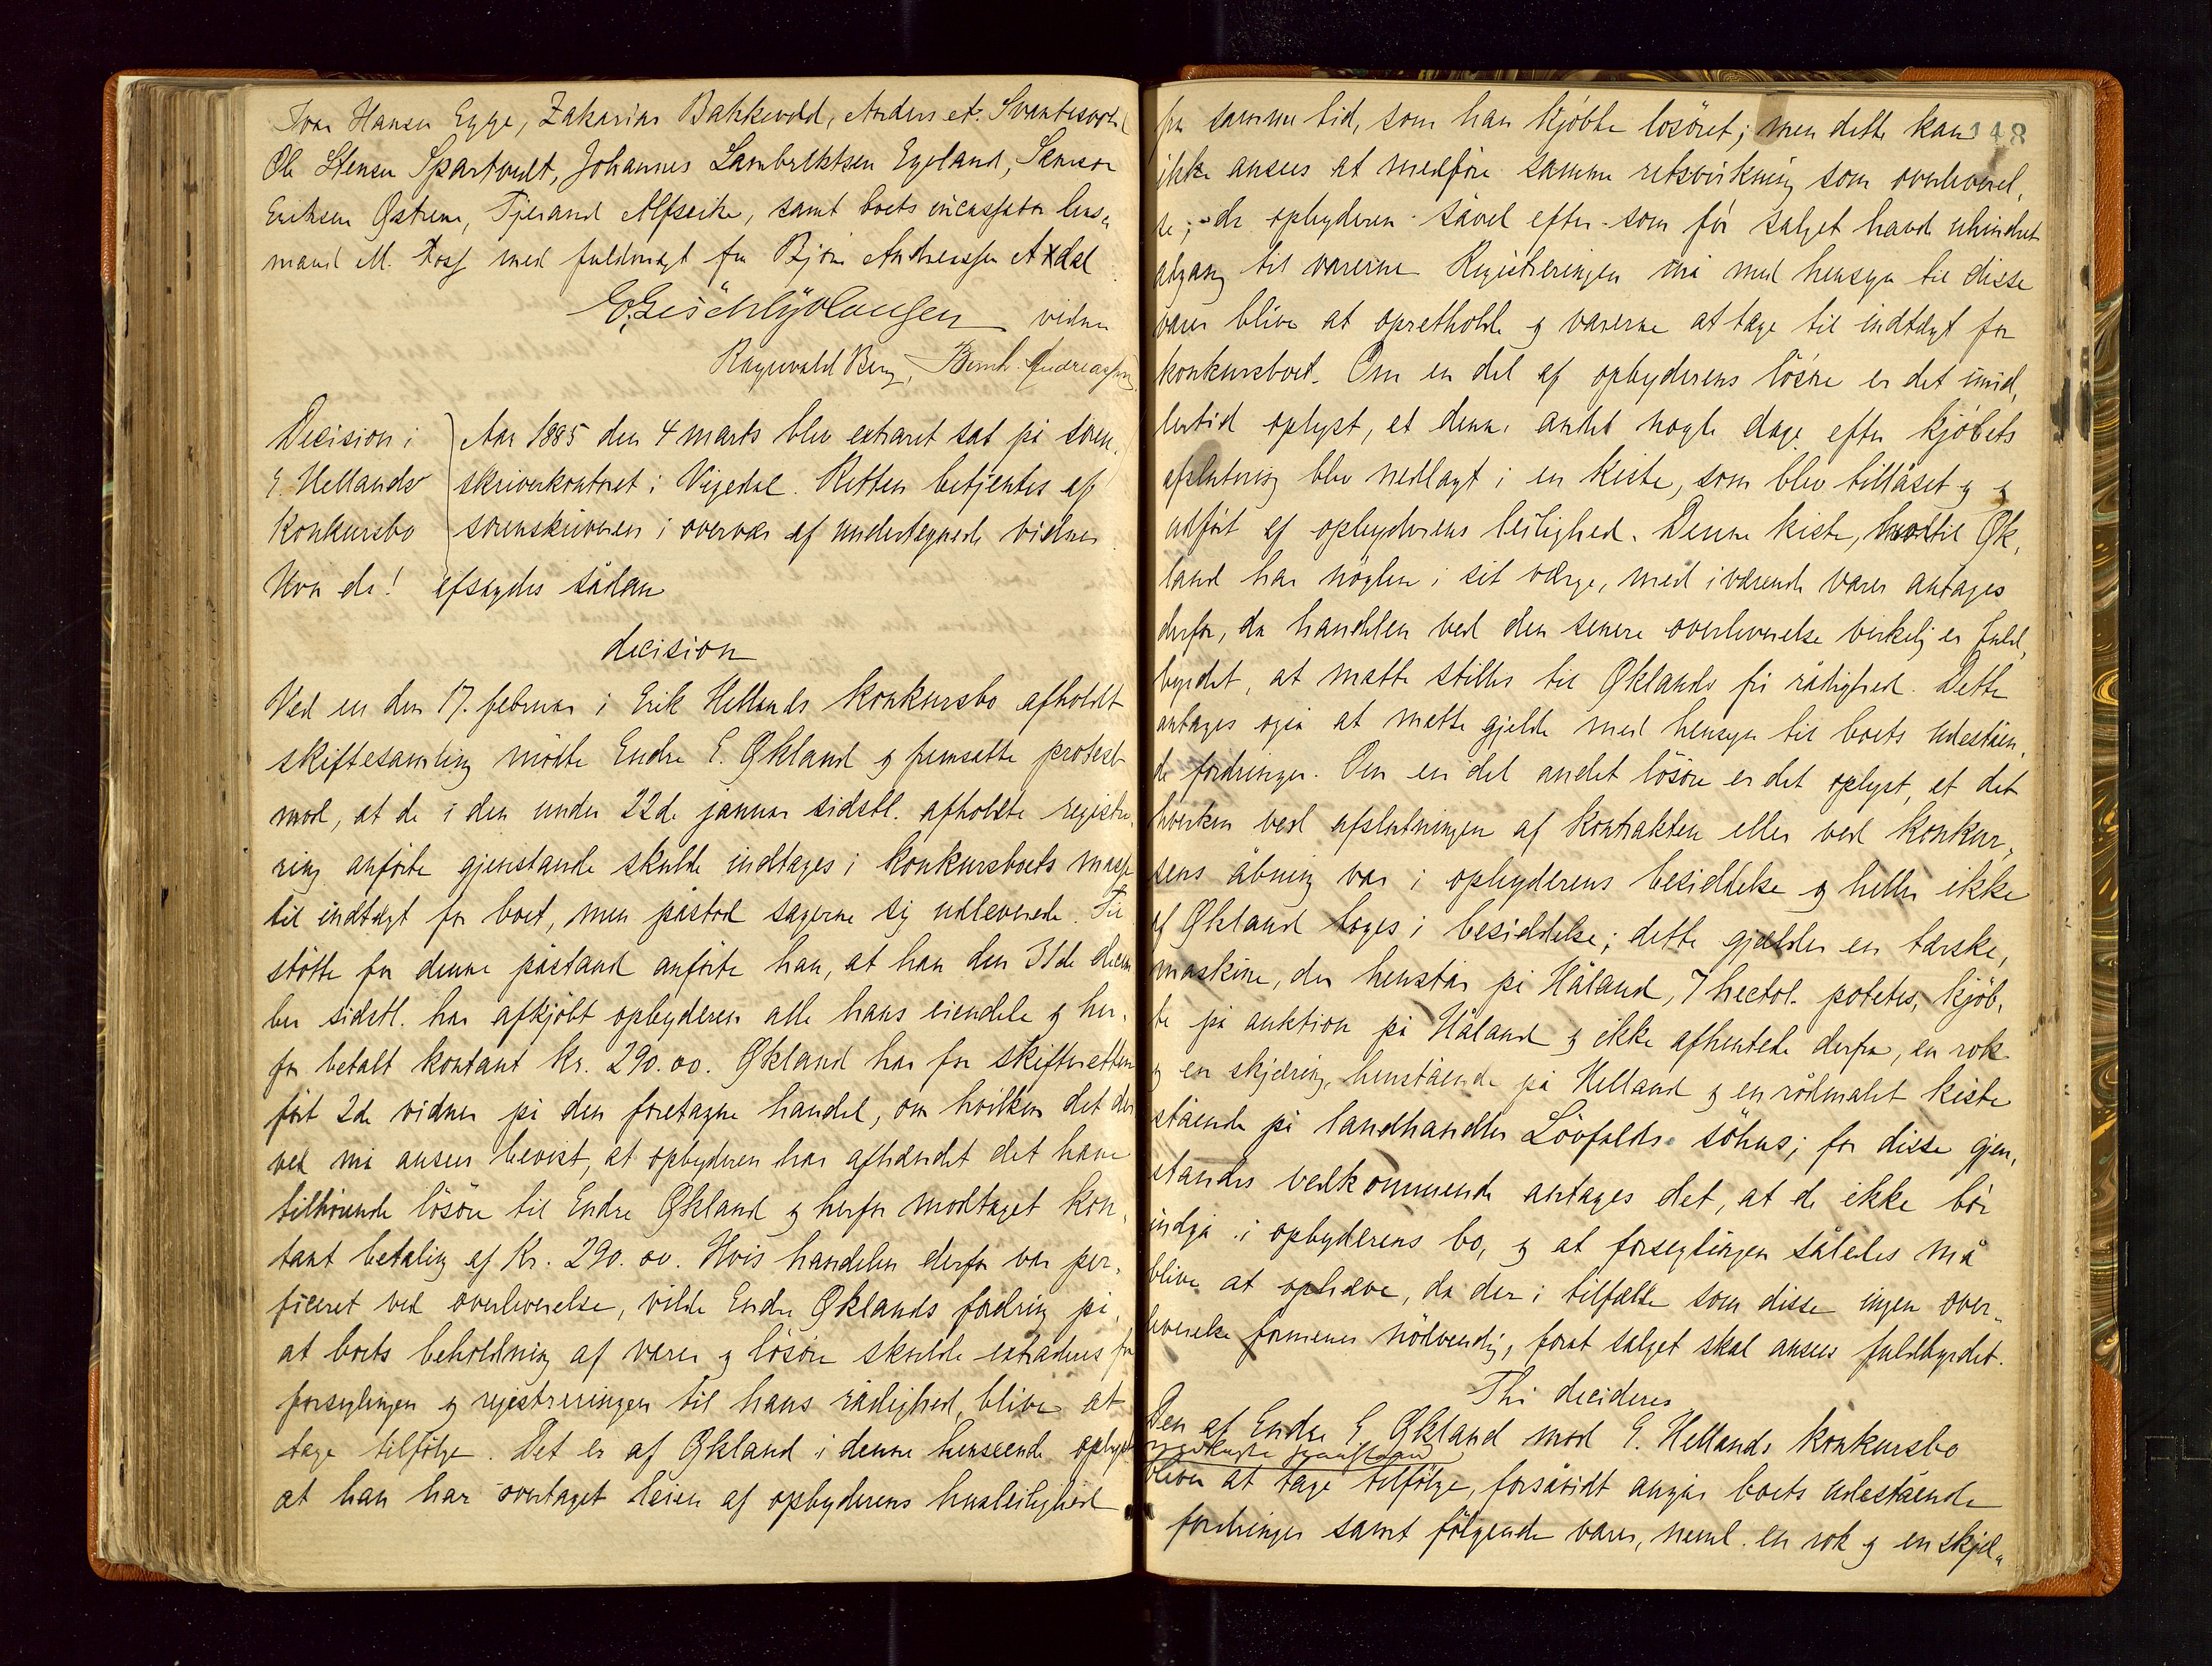 Ivar Hansen Egge, Zakarias Bakkevold, Anders A. Svantesvold
Ole Stensen Spartvedt, Johannes Lambrektsen Egeland, Samson
Eriksen Østrem, Tjerand Alfseike, samt boets incassator lens„
mand M. Foss med fuldmagt fra Bjørn Andreassen Axdal
vidner
Ragnvald Berg, Bernh. Andreassen
Decision i
E. Hellands
Konkursbo
Hvor da!
Aar 1885 den 4 marts blev extraret sat på soren,
skriverkontoret i Vigedal. Retten betjentes af
sorenskriveren i overvær af undertegnede vidner
afsagdes sådan
decision
Ved en den 17. februar i Erik Hellands konkursbo afholdt
skiftesamling mödte Endre E. Økland og fremsatte protest
mod, at de i den under 22de januar sidstl. afholdte registre,
ring anförte gjenstande skulde indtages i konkursboets masse
til indtægt for boet, men påstod sagerne sig udleverede. Til
stötte for denne påstand anförte han, at han den 31de decem
ber sidstl. har afkjöbt opbyderen alle hans eiendele og her,
for betalt kontant kr. 290.00. Økland har for skifteretten
fört 2de vidner på den foretagne handel, om hvilken det der
ved må ansees bevist, at opbyderen har afhændet det ham
tilhörende lösöre til Endre Økland og herfor modtaget kon,
tant betaling af Kr. 290.00. Hvis handelen derfor var per,
ficeret ved overleverelse, vilde Endre Øklands fordring på,
at boets beholdning af varer og lösöre skulde extraderes fra
forseglingen og registreringen til hans rådighed, blive at
tage tilfölge. Det er af Økland i denne henseende oplyst
at han har overtaget leien af opbyderens husleilighed
148
fra samme tid, som han kjöbte lösöret; men dette kan
ikke ansees at medföre samme retsvirkning som overleverel,
se; da opbyderen såvel efter som för salget havde uhindret
adgang til varerne. Registreringen må med hensyn til disse
varer blive at opretholde og varerne at tage til indtægt for
konkursboet. Om en del af opbyderens lösöre er det imid,
lertid oplyst, at denne andet nogle dage efter kjöbets
afslutning blev nedlagt i en kiste, som blev tillåset og
udfört af opbyderens leilighed. Denne kiste, hvortil Øk,
land har nöglen i sit værge, med iværende varer antages
derfor, da handelen ved den senere overleverelse virkelig er fuld,
byrdet, at måtte stilles til Øklands fri rådighed. Dette
antages også at måtte gjelde med hensyn til boets udeståen,
de fordringer. Om en del andet lösöre er det oplyst, at det
hverken ved afslutningen af kontrakten eller ved konkur,
sens åbning var i opbyderens besiddelse og heller ikke
af Økland toges i besiddelse; dette gjælder en tærske,
maskine, der henstår på Håland, 7 hectol. potetes, kjöb,
te på auktion på Håland og ikke afhentede derfra, en rok
og en skjæring, henstående på Helland og en rödmalet kiste
stående på landhandler Lövfalds söhus; for disse gjen,
standes vedkommende antages det, at de ikke bör
indgå i opbyderens bo, og at forseglingen således må
blive at ophæve, da der i tilfælde som disse ingen over,
leverelse formenes nödvendig, forat salget skal ansees fuldbyrdet.
Thi decideres
Den af Endre E. Økland mod E. Hellands konkursbo
nedlagte påstand
bliver at tage tilfölge, forsåvidt angår boets udestående
fordringer samt fölgende varer, neml. en rok og en skjæ„